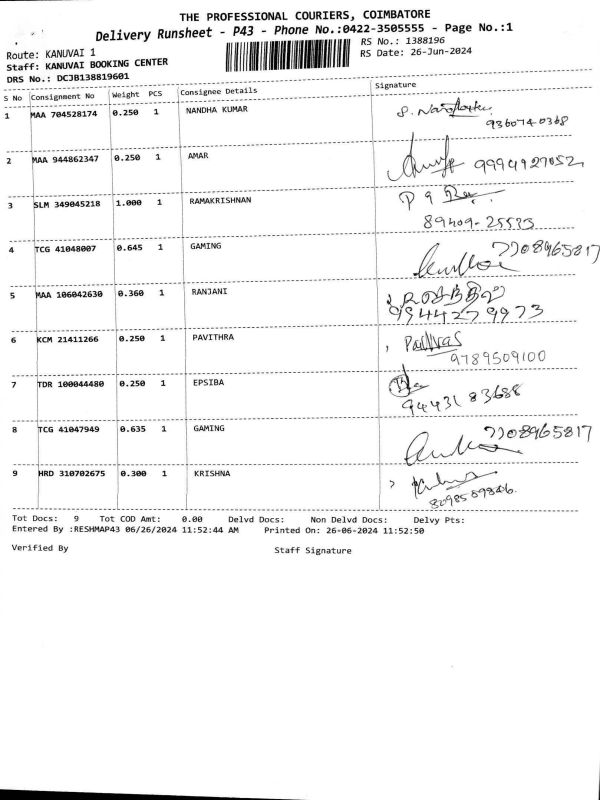 THE PROFESSIONAL COURIERS, COIMBATORE
Delivery Runsheet - P43 - Phone No.:0422-3505555 - Page No.:1
Route: KANUVAI 1
Staff: KANUVAI BOOKING CENTER
DRS No.: DCJB138819601
RS No.: 1388196
RS Date: 26-Jun-2024
S No Consignment No Weight PCS Consignee Details Signature
1 MAA 704528174 0.250 1 NANDHA KUMAR
9360740368
2 MAA 944862347 0.250 1 AMAR 9994927052
3 SLM 349045218 1.000 1 RAMAKRISHNAN
89409-25533
4 TCG 41048007 0.645 1 GAMING 7708965817
5 MAA 106042630 0.360 1 RANJANI
9944279973
6 KCM 21411266 0.250 1 PAVITHRA
9789509100
7 TDR 100044480 0.250 1 EPSIBA
9443183688
8 TCG 41047949 0.635 1 GAMING 7708965817
9 HRD 310702675 0.300 1 KRISHNA
Tot Docs: 9 Tot COD Amt: 0.00 Delvd Docs: Non Delvd Docs: Delvy Pts:
Entered By :RESHMAP43 06/26/2024 11:52:44 AM Printed On: 26-06-2024 11:52:50
Verified By Staff Signature